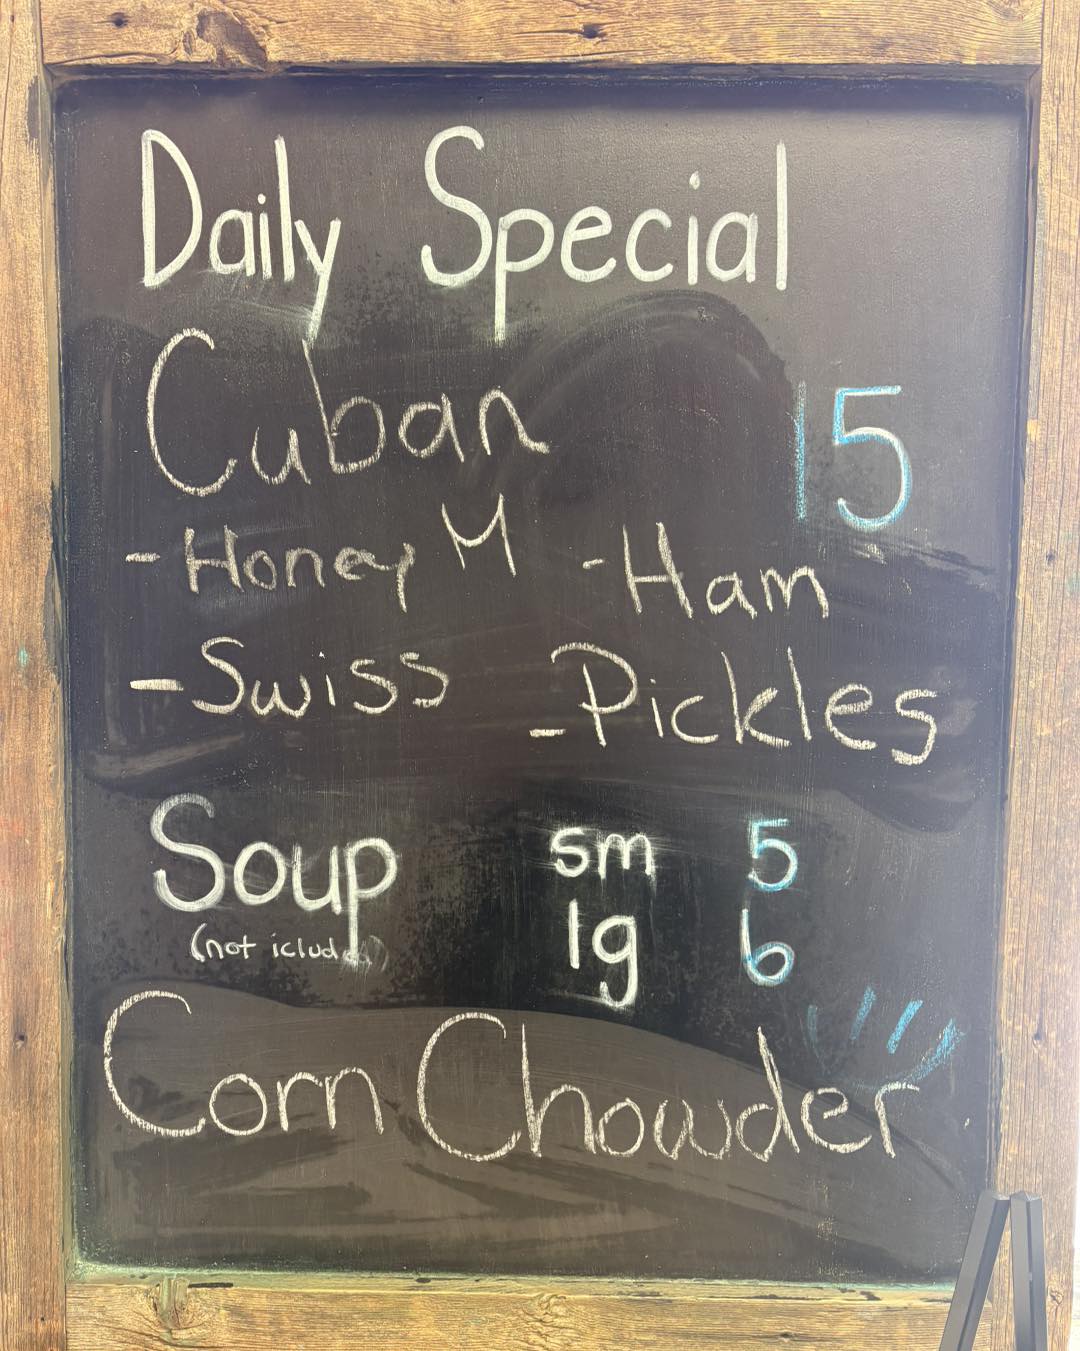 Daily Special
Cuban 15
- Honey M - Ham
- Swiss - Pickles
Soup sm 5
lg 6
(not icluded)
Corn Chowder